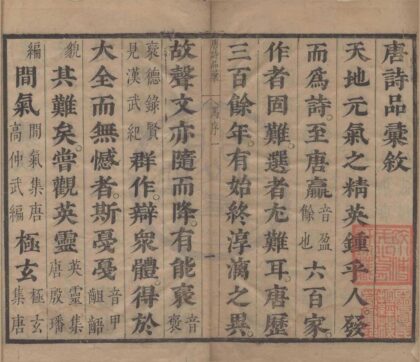 唐詩品彙敘
天地元氣之精英鍾乎人發
而爲詩至唐贏音盈餘也六百家
作者固難選者尤難耳唐歷
三百餘年有始終淳漓之異
故聲文亦隨而降有能裒音褒
裒德錄賢見漢武紀群作辯衆體得於
大全而無憾者斯戞戞音甲齟齬
貌其難矣嘗觀英靈英靈集唐殷璠
編間氣間氣集唐高仲武編極玄極玄集唐